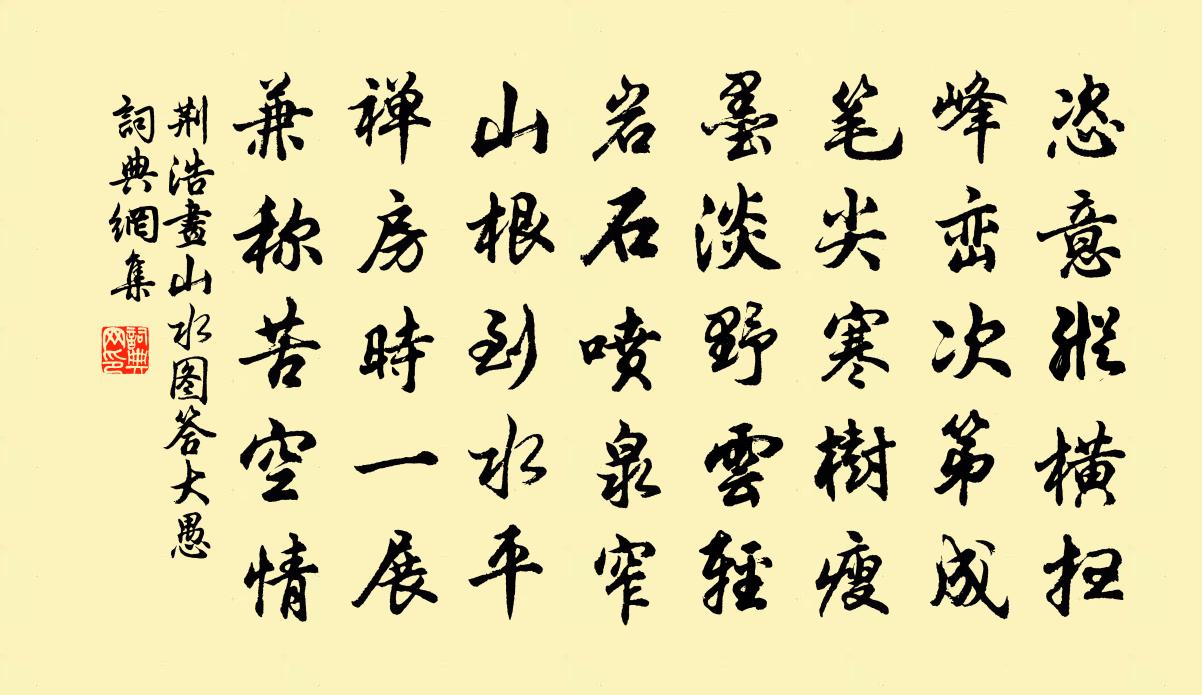 恣意縱橫扫
峰峦次第成
笔尖寒樹瘦
墨淡野雲輕
岩石喷泉窄
山根到水平
禅房時一展
兼称苦空情
荆浩畫山水图答大愚
詞典網集
詞典網印